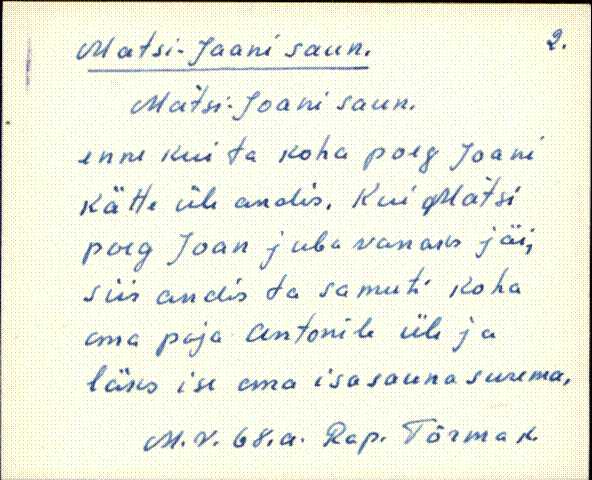 Matsi-Jaani saun. 2.
Mätsi-Joani saun.
enne kui ta koha poeg Joani
kätte üle andis. Kui Mätsi
poeg Joan juba vanaks jäi,
siis andis ta samuti koha
oma poja Antonile üle ja
läks ise oma isa sauna surema,
M.V. 68.a. Rap. Tõrma k.